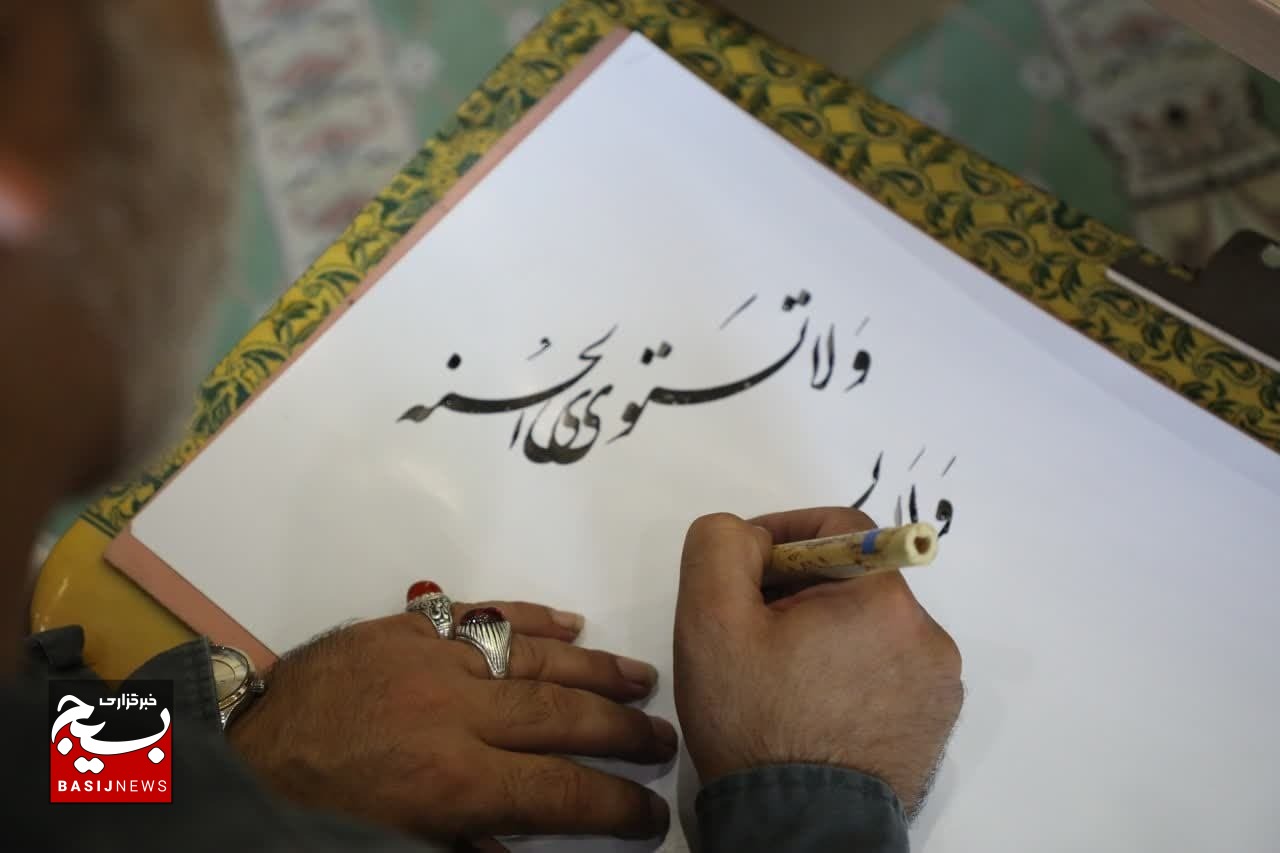 وَلا تَستَوی الحُسنه
وَلَا
خبرگزاری
بسیج
BASIJNEWS